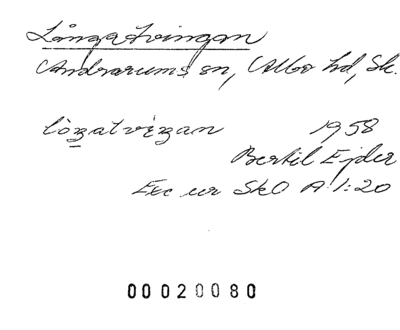 Långatvingan
Andrarums sn, Albo hd, Sk.
1958
Bertil Ejder
Exc ur SkO A:1:20
00020080